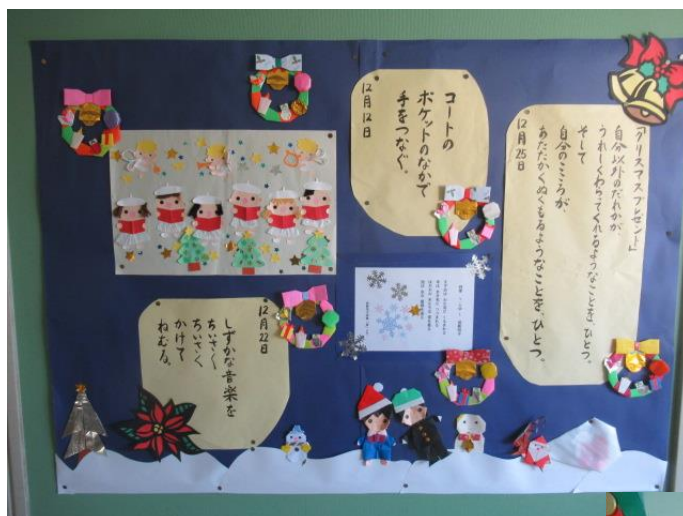 「クリスマスプレゼント」
自分以外のだれかが、
うれしくわらってくれるようなことを、ひとつ。
そして
自分のこころが、
あたたかくぬくもるようなことを、ひとつ。
12月25日
コートの
ポケットのなかで
手をつなぐ。
12月12日
12月22日
しずかな音楽を
ちいさく
ちいさく
かけて
ねむる。